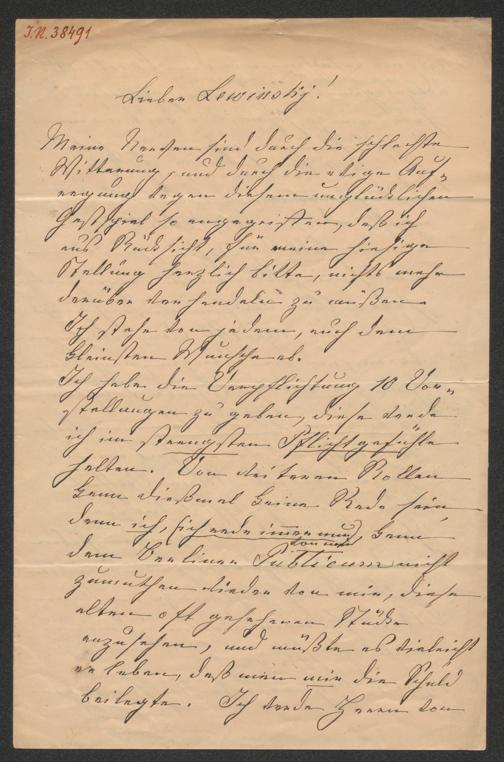 J.N. 38491
Lieber Lewinsky!
Meine Nerven sind durch die schlechte
Witterung, und durch die ewige Auf-
regung wegen diesem unglücklichen
Gastspiel so angegriffen, daß ich
aus Rücksicht, für meine hiesige
Stellung herzlich bitte, nichts mehr
darüber verhandeln zu müßen.
Ich stehe von jedem, auch dem
kleinsten Wunsche ab.
Ich habe die Verpflichtung 10 Vor-
stellungen zu geben, diese werde
ich im strengsten Pflichtgefühle
halten. Von weiteren Rollen
kann dießmal keine Rede sein,
denn ich, (ich rede immer nur
von mir) kann
dem Berliner Publicum nicht
zumuthen wieder von mir, diese
alten oft gesehenen Stücke
anzusehen, und müßte es vieleicht
erleben, daß man mir die Schuld
beilegte. Ich werde Herrn von